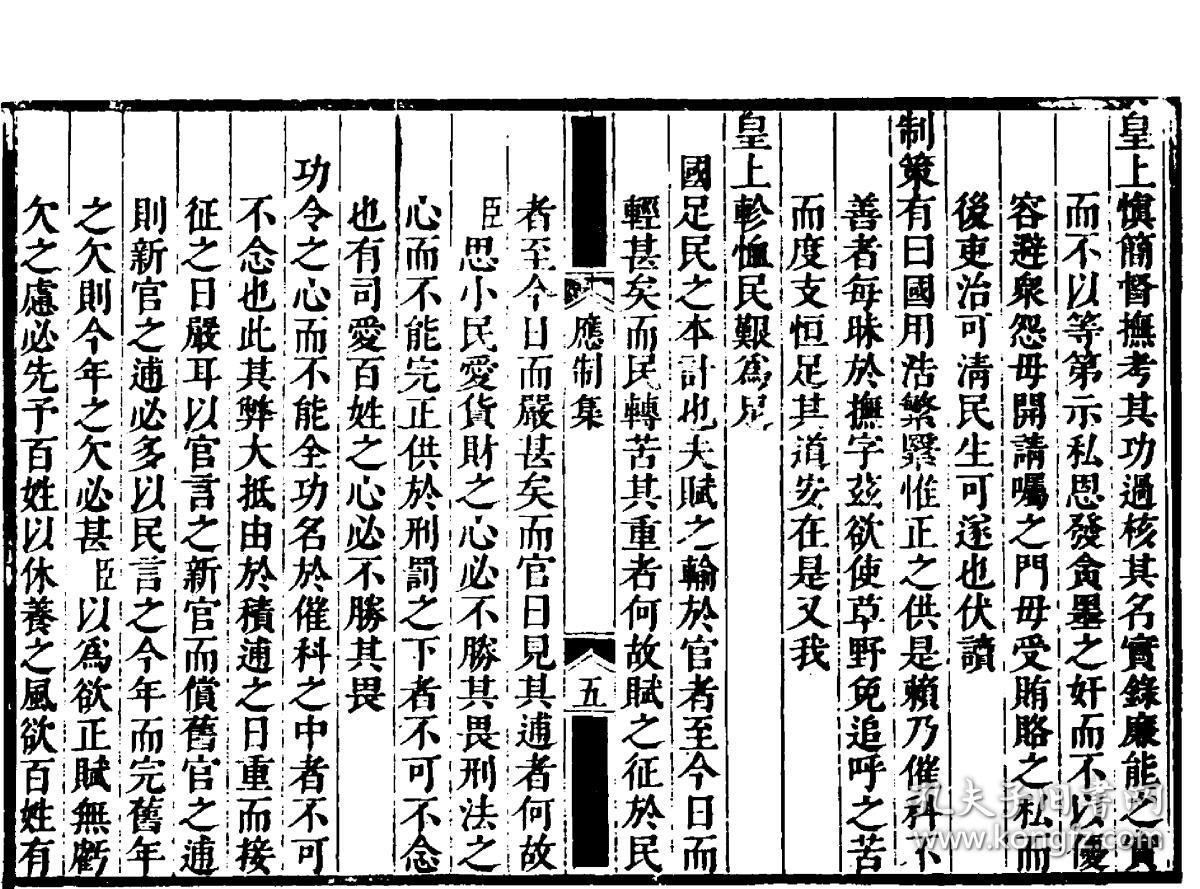 皇上慎簡督撫考其功過核其名實錄廉能之實
而不以等第示私恩發貪墨之奸而不以優
容避衆怨毋開請囑之門毋受賄賂之私而
後吏治可清民生可遂也伏讀
制策有曰國用浩繁緊惟正之供是賴乃催科不
善者每昧於撫字茲欲使草野免追呼之苦
而度支恒足其道安在是又我
皇上軫恤民艱爲足
國足民之本計也夫賦之輸於官者至今日而
輕甚矣而民轉苦其重者何故賦之征於民
應制集
五
者至今日而嚴甚矣而官日見其逋者何故
臣思小民愛貨財之心必不勝其畏刑法之
心而不能完正供於刑罰之下者不可不念
也有司愛百姓之心必不勝其畏
功令之心而不能全功名於催科之中者不可
不念也此其弊大抵由於積逋之日重而接
征之日嚴耳以官言之新官而償舊官之逋
則新官之逋必多以民言之今年而完舊年
之欠則今年之欠必甚臣以爲欲正賦無虧
欠之慮必先予百姓以休養之風欲百姓有
孔夫子旧书网
www.kongfz.com